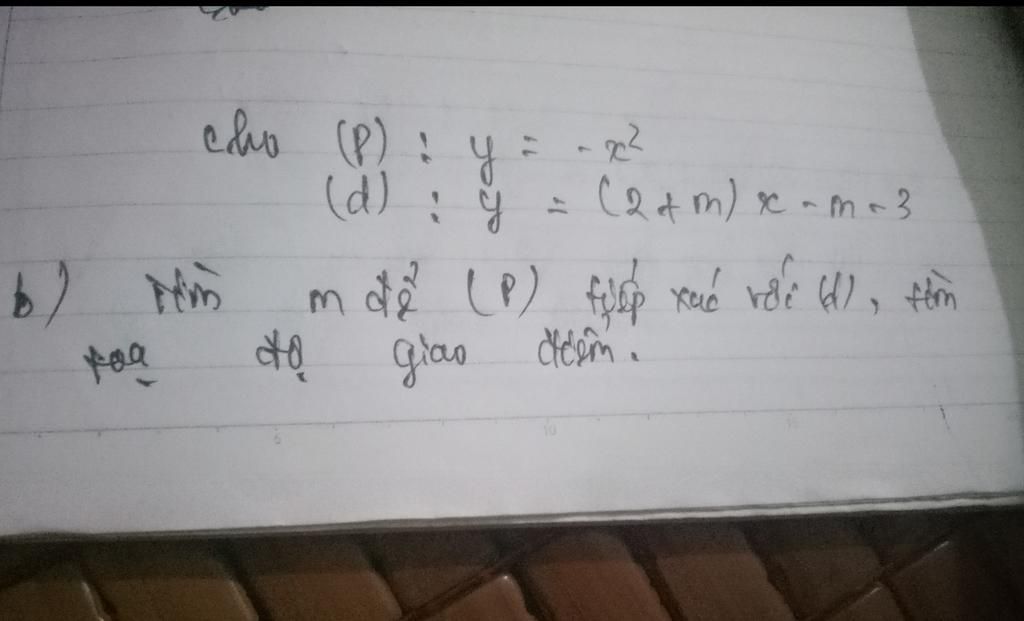 cho (P) : y = -x²
(d) : y = (2+m) x - m - 3
b) Tìm m để (P) tiếp xúc với (d), tìm
toạ độ giao điểm.
5 10 15